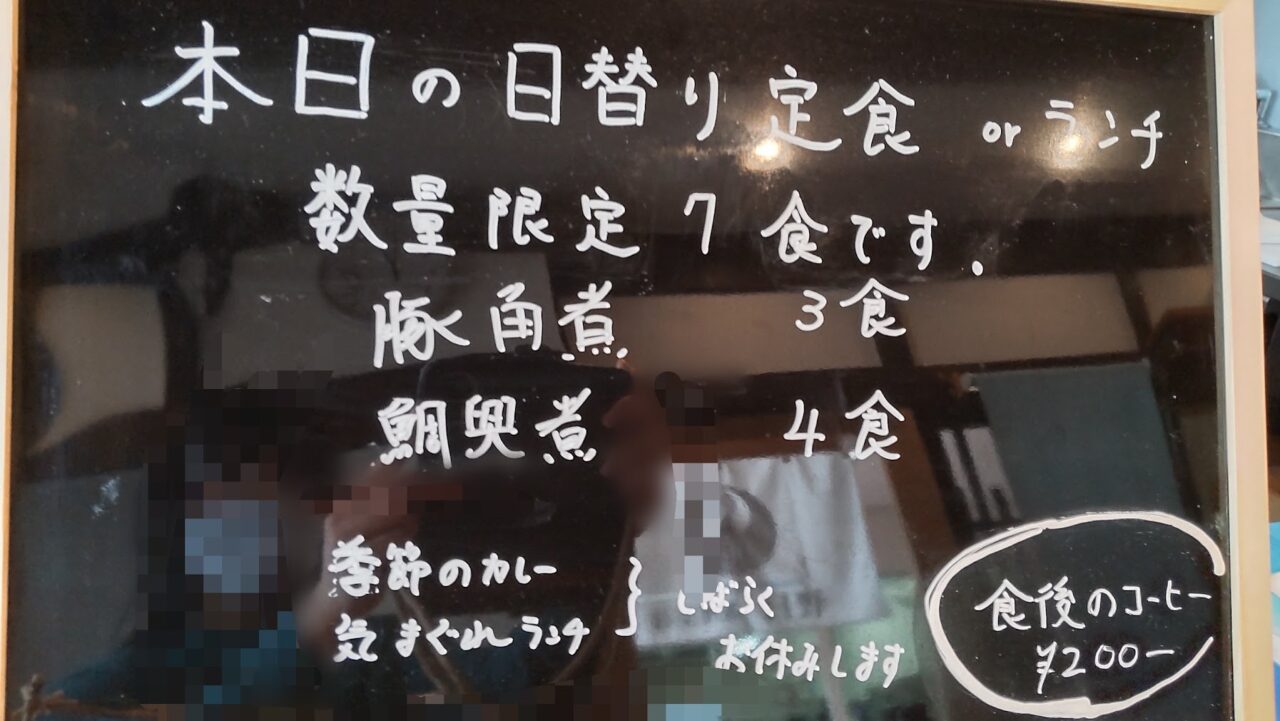 本日の日替り定食 or ランチ
数量限定 7食です.
豚角煮 3食
鯛興煮 4食
季節のカレー
気まぐれランチ
} しばらく
お休みします
食後のコーヒー
¥200ー